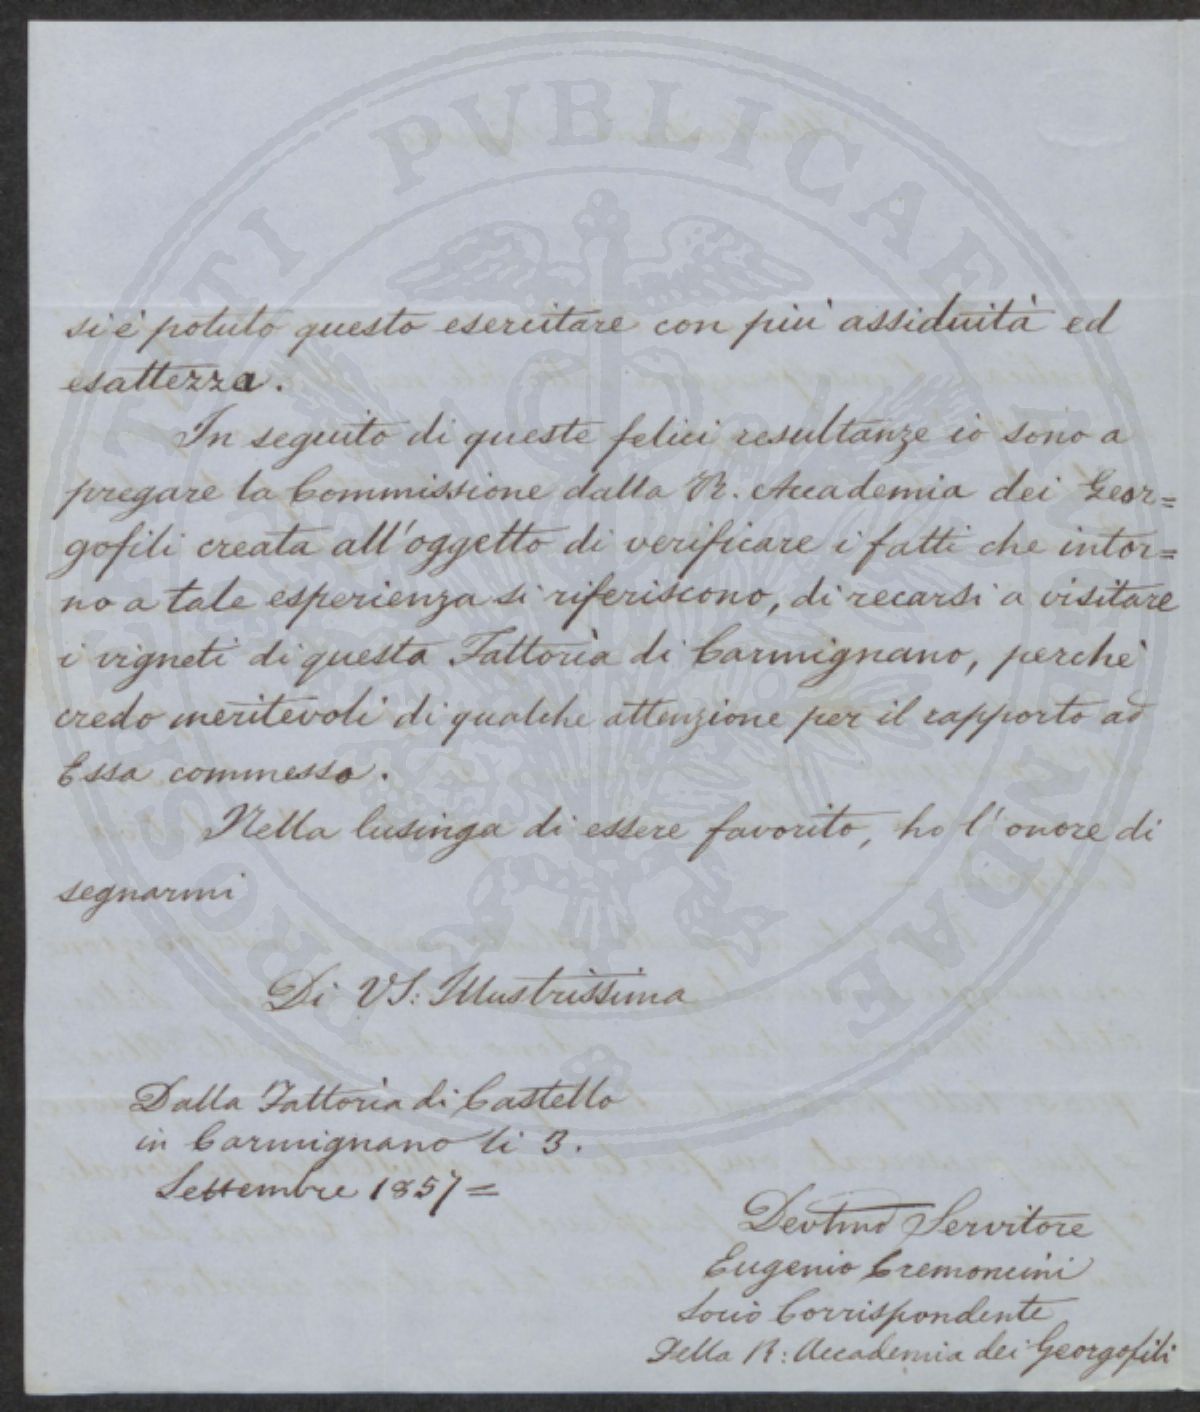 si è potuto questo esercitare con più assiduità ed
esattezza.
In seguito di queste felici resultanze io sono a
pregare la Commissione dalla R. Accademia dei Geor=
gofili creata all'oggetto di verificare i fatti che intor=
no a tale esperienza si riferiscono, di recarsi a visitare
i vigneti di questa Fattoria di Carmignano, perchè
credo meritevoli di qualche attenzione per il rapporto ad
Essa commesso.
Nella lusinga di essere favorito, ho l'onore di
segnarmi
Di VS: Illustrissima
Dalla Fattoria di Castello
in Carmignano li 3.
Settembre 1857=
Devtmo Servitore
Eugenio Cremoncini
Socio Corrispondente
Della R: Accademia dei Georgofili